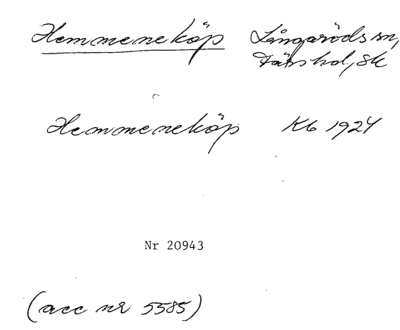 Hemmeneköp Långaröds sn,
Färs hd, Sk
Hemmeneköp Kb 1924
Nr 20943
(acc nr 5585)